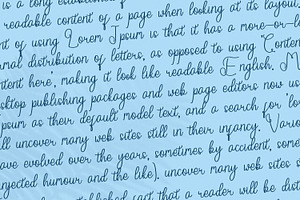 is a long established f
readable content of a page when looking at its layout
nt of using Lorem Ipsum is that it has a more-or-l
rmal distribution of letters, as opposed to using 'Conten
ntent here', making it look like readable English. M
sktop publishing packages and web page editors now us
psum as their default model text, and a search for 'lo
ll uncover many web sites still in their infancy. Vario
ave evolved over the years, sometimes by accident, some
njected humour and the like). uncover many web sites s
established fact that a reader will be dist